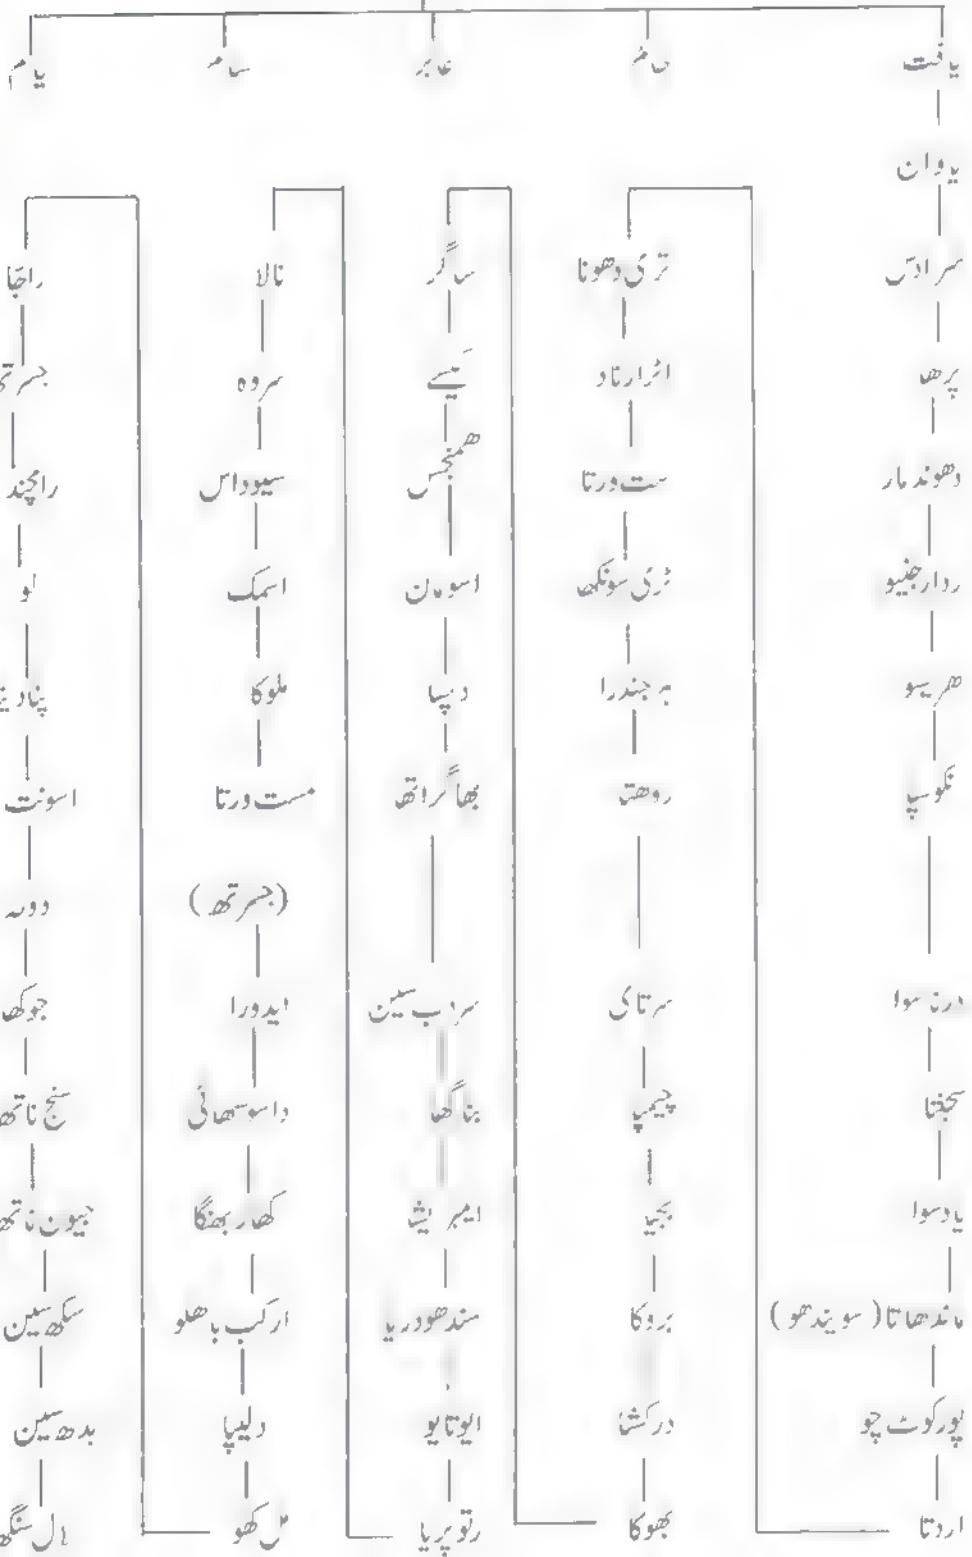 یافت
حام
عابر
سام
یام
یاوان
سرادس
پرھا
دھوندمار
ردارجنیو
ھریسو
نکوسپا
درناسوا
سجفتا
یادسوا
ماندھاتا (سویندھو)
پورکوٹ چو
اردتا
تری دھونا
اٹرارناد
ست ورتا
ٹری سونکھا
ہرجندرا
روھت
سرتای
چیمپ
بجیا
بروکا
درکشا
بھوکا
ساگر
کیسے
ھمنجس
اسومان
دیپا
بھاگراتھ
سردب سین
بناگھا
ایمبریشا
سندھودریا
ایوتایو
رتوپریا
نالا
سروہ
سیوداس
اسمک
ملوکا
مست ورتا
(جسرتھ)
ایدورا
داسوسھائی
کھاربھنگا
ارکب باھلو
دلیپا
مل کھو
راجا
جسرتھ
رامچند
لو
اسونت
دوسہ
جوکھا
سنج ناتھ
جیون ناتھ
سکھ سین
بدھ سین